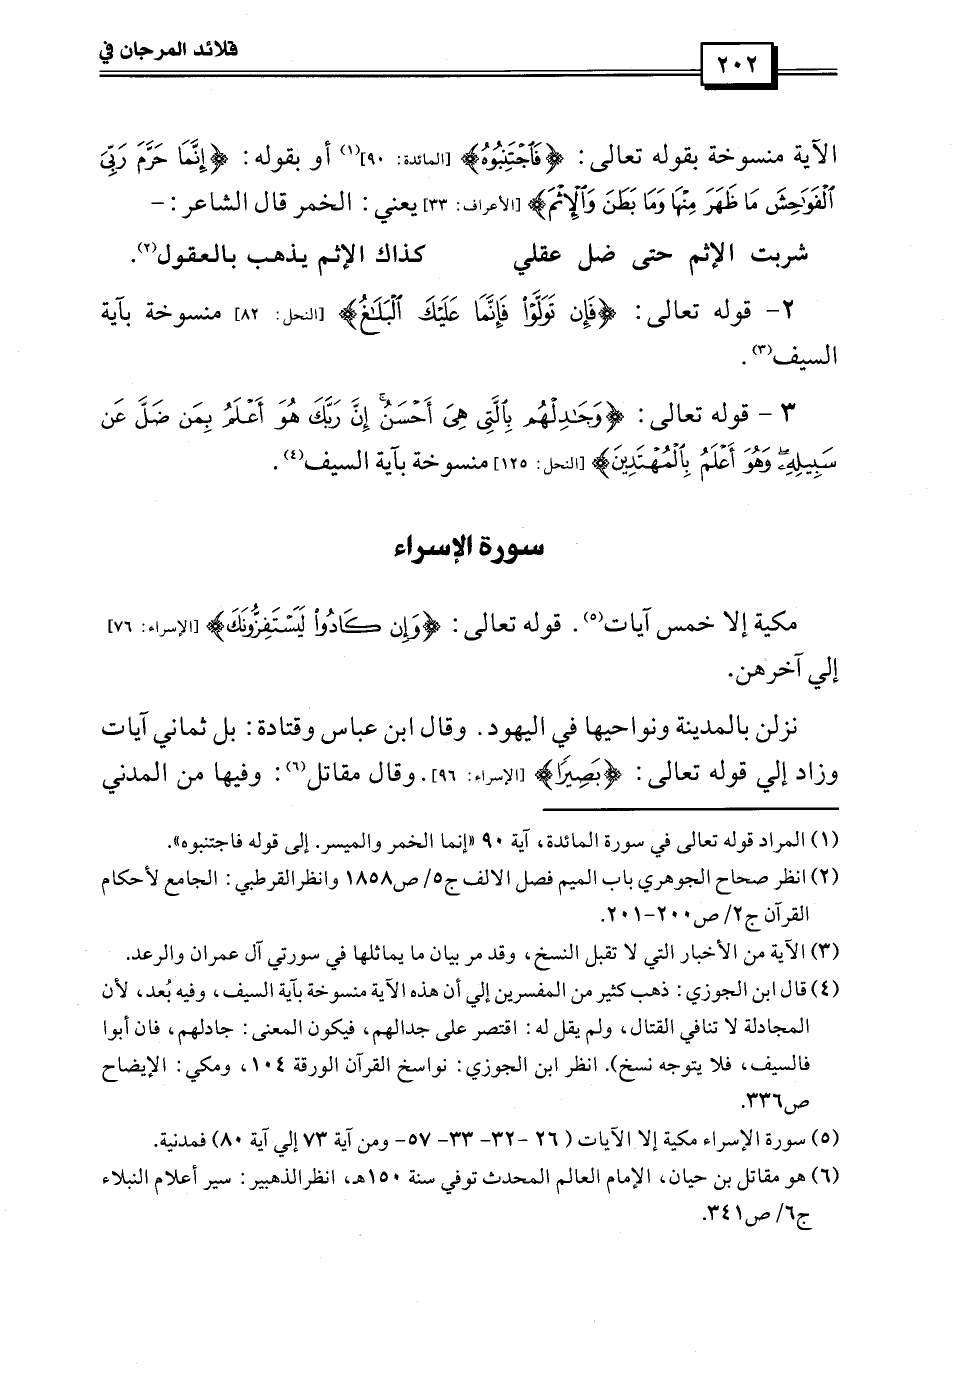 قلائد المرجان في
٢٠٢
الآية منسوخة بقوله تعالى: ﴿فَٱجْتَنِبُوهُ﴾ [المائدة: ٩٠](١) أو بقوله: ﴿إِنَّمَا حَرَّمَ رَبِّيَ
ٱلْفَوَٰحِشَ مَا ظَهَرَ مِنْهَا وَمَا بَطَنَ وَٱلْإِثْمَ﴾ [الأعراف: ٣٣] يعني: الخمر قال الشاعر: -
شربت الإثم حتى ضل عقلي كذاك الإثم يذهب بالعقول(٢).
٢- قوله تعالى: ﴿فَإِن تَوَلَّوْا۟ فَإِنَّمَا عَلَيْكَ ٱلْبَلَٰغُ﴾ [النحل: ٨٢] منسوخة بآية
السيف(٣).
٣ - قوله تعالى: ﴿وَجَٰدِلْهُم بِٱلَّتِى هِىَ أَحْسَنُ ۚ إِنَّ رَبَّكَ هُوَ أَعْلَمُ بِمَن ضَلَّ عَن
سَبِيلِهِۦ ۖ وَهُوَ أَعْلَمُ بِٱلْمُهْتَدِينَ﴾ [النحل: ١٢٥] منسوخة بآية السيف(٤).
سورة الإسراء
مكية إلا خمس آيات(٥). قوله تعالى: ﴿وَإِن كَادُوا۟ لَيَسْتَفِزُّونَكَ﴾ [الإسراء: ٧٦]
إلي آخرهن.
نزلن بالمدينة ونواحيها في اليهود. وقال ابن عباس وقتادة: بل ثماني آيات
وزاد إلي قوله تعالى: ﴿بَصِيرًا﴾ [الإسراء: ٩٦]. وقال مقاتل(٦): وفيها من المدني
(١) المراد قوله تعالى في سورة المائدة، آية ٩٠ «إنما الخمر والميسر. إلى قوله فاجتنبوه».
(٢) انظر صحاح الجوهري باب الميم فصل الالف ج٥/ ص١٨٥٨ وانظرالقرطبي: الجامع لأحكام
القرآن ج٢/ ص٢٠٠-٢٠١.
(٣) الآية من الأخبار التي لا تقبل النسخ، وقد مر بيان ما يماثلها في سورتي آل عمران والرعد.
(٤) قال ابن الجوزي: ذهب كثير من المفسرين إلي أن هذه الآية منسوخة بآية السيف، وفيه بُعد، لأن
المجادلة لا تنافي القتال، ولم يقل له: اقتصر على جدالهم، فيكون المعنى: جادلهم، فان أبوا
فالسيف، فلا يتوجه نسخ). انظر ابن الجوزي: نواسخ القرآن الورقة ١٠٤، ومكي: الإيضاح
ص٣٣٦.
(٥) سورة الإسراء مكية إلا الآيات ( ٢٦ -٣٢- ٣٣- ٥٧- ومن آية ٧٣ إلي آية ٨٠) فمدنية.
(٦) هو مقاتل بن حيان، الإمام العالم المحدث توفي سنة ١٥٠هـ، انظرالذهبير: سير أعلام النبلاء
ج٦/ ص٣٤١.